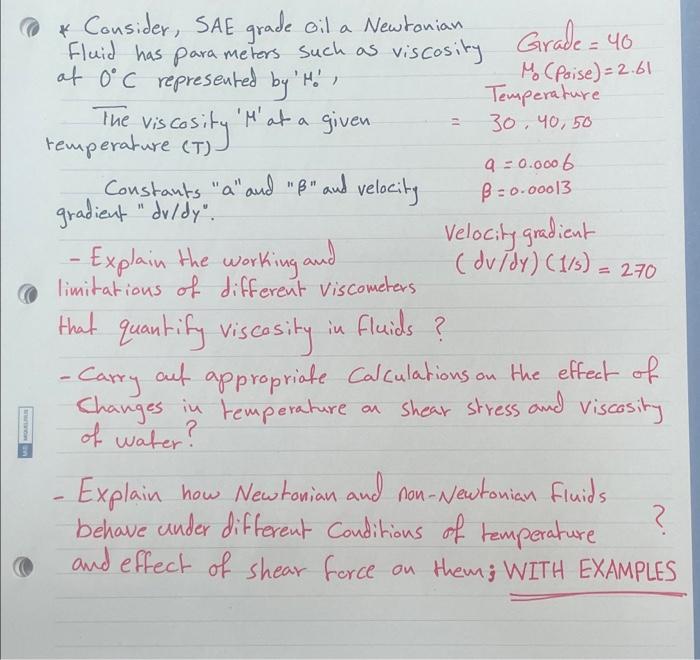 * Consider, SAE grade oil a Newtonian
Fluid has parameters such as viscosity
at 0°C represented by 'M₀',
The viscosity 'M' at a given
temperature (T)
Constants "a" and "β" and velocity
gradient "dv/dy".
Grade = 40
M₀ (Poise) = 2.61
Temperature
= 30, 40, 50
a = 0.0006
β = 0.00013
Velocity gradient
(dv/dy) (1/s) = 270
- Explain the working and
limitations of different viscometers
that quantify viscosity in fluids ?
- Carry out appropriate Calculations on the effect of
Changes in temperature on shear stress and viscosity
of water?
- Explain how Newtonian and non-Newtonian fluids
behave under different Conditions of temperature ?
and effect of shear force on them; WITH EXAMPLES